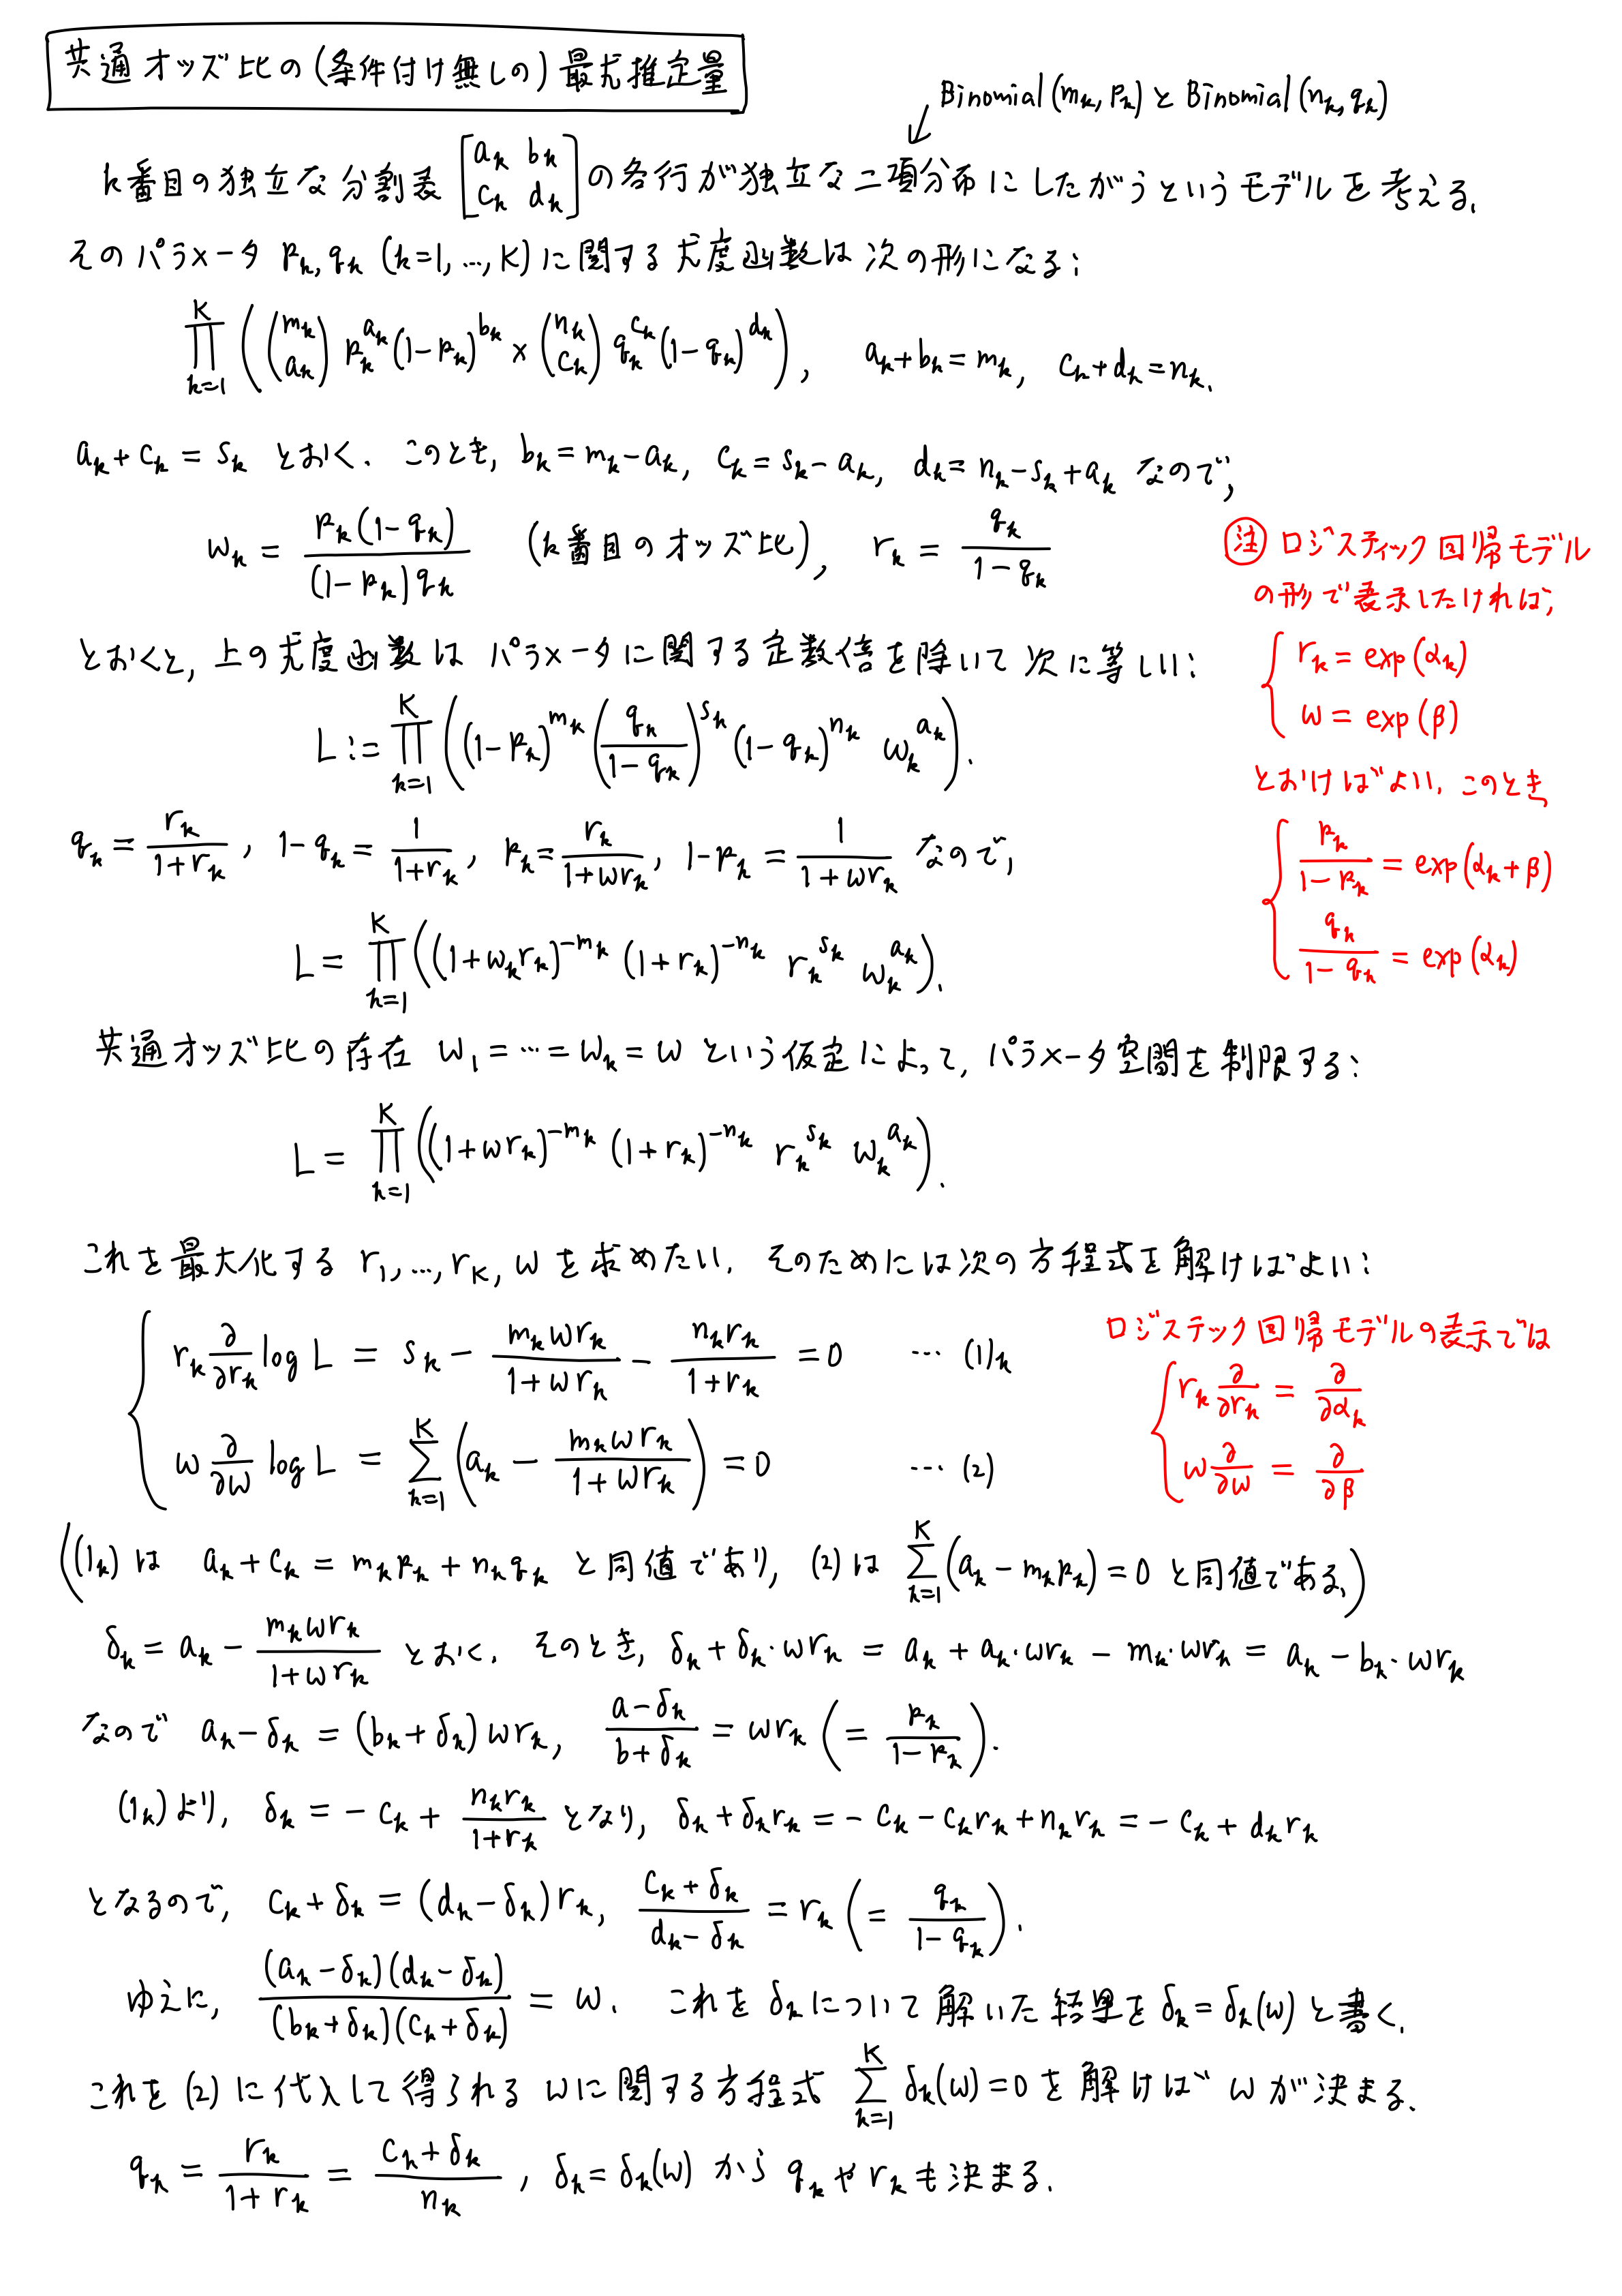 共通オッズ比の(条件付け無しの)最尤推定量
Binomial(m_k, p_k) と Binomial(n_k, q_k)
k番目の独立な分割表 [a_k b_k; c_k d_k] の各行が独立な二項分布にしたがうというモデルを考える.
そのパラメータ p_k, q_k (k=1, …, K) に関する尤度函数は次の形になる:
∏_{k=1}^{K} ( (m_k choose a_k) p_k^{a_k} (1-p_k)^{b_k} × (n_k choose c_k) q_k^{c_k} (1-q_k)^{d_k} ), a_k+b_k=m_k, c_k+d_k=n_k.
a_k+c_k = s_k とおく. このとき, b_k=m_k-a_k, c_k=s_k-a_k, d_k=n_k-s_k+a_k なので,
ω_k = p_k(1-q_k) / (1-p_k)q_k (k番目のオッズ比), r_k = q_k / (1-q_k)
とおくと, 上の尤度函数は パラメータに関する定数倍を除いて次に等しい:
L := ∏_{k=1}^{K} ( (1-p_k)^{m_k} (q_k/(1-q_k))^{s_k} (1-q_k)^{n_k} ω_k^{a_k} ).
q_k = r_k/(1+r_k), 1-q_k = 1/(1+r_k), p_k = r_k/(1+ωr_k), 1-p_k = 1/(1+ωr_k) なので,
L = ∏_{k=1}^{K} ( (1+ω_k r_k)^{-m_k} (1+r_k)^{-n_k} r_k^{s_k} ω_k^{a_k} ).
注 ロジスティック回帰モデル
の形で表示したければ,
{ r_k = exp(α_k)
ω = exp(β)
とおけばよい. このとき
{ p_k/(1-p_k) = exp(α_k+β)
q_k/(1-q_k) = exp(α_k)
共通オッズ比の存在 ω_1=…=ω_k=ω という仮定によって, パラメータ空間を制限する:
L = ∏_{k=1}^{K} ( (1+ωr_k)^{-m_k} (1+r_k)^{-n_k} r_k^{s_k} ω_k^{a_k} ).
これを最大化する r_1, …, r_K, ω を求めたい. そのためには次の方程式を解けばよい:
{ r_k ∂/∂r_k log L = s_k - m_kωr_k/(1+ωr_k) - n_kr_k/(1+r_k) = 0 … (1)_k
ω ∂/∂ω log L = ∑_{k=1}^{K} ( a_k - m_kωr_k/(1+ωr_k) ) = 0 … (2)
ロジステック回帰モデルの表示では
{ r_k ∂/∂r_k = ∂/∂α_k
ω ∂/∂ω = ∂/∂β
((1_k) は a_k+c_k = m_kp_k+n_kq_k と同値であり, (2)は ∑_{k=1}^{K} (a_k-m_kp_k)=0 と同値である.)
δ_k = a_k - m_kωr_k/(1+ωr_k) とおく. そのとき, δ_k+δ_k・ωr_k = a_k+a_k・ωr_k - m_k・ωr_k = a_k - b_k・ωr_k
なので a_k-δ_k = (b_k+δ_k)ωr_k, (a-δ_k)/(b+δ_k) = ωr_k (= p_k/(1-p_k)).
(1_k)より, δ_k = -c_k + n_kr_k/(1+r_k) となり, δ_k+δ_kr_k = -c_k-c_kr_k+n_kr_k = -c_k+d_kr_k
となるので, c_k+δ_k = (d_k-δ_k)r_k, (c_k+δ_k)/(d_k-δ_k) = r_k (= q_k/(1-q_k)).
ゆえに, (a_k-δ_k)(d_k-δ_k)/(b_k+δ_k)(c_k+δ_k) = ω. これを δ_k について解いた結果を δ_k=δ_k(ω) と書く.
これを (2) に代入して得られる ωに関する方程式 ∑_{k=1}^{K} δ_k(ω)=0 を解けば ω が決まる.
q_k = r_k/(1+r_k) = (c_k+δ_k)/n_k, δ_k=δ_k(ω) から q_k や r_k も決まる.